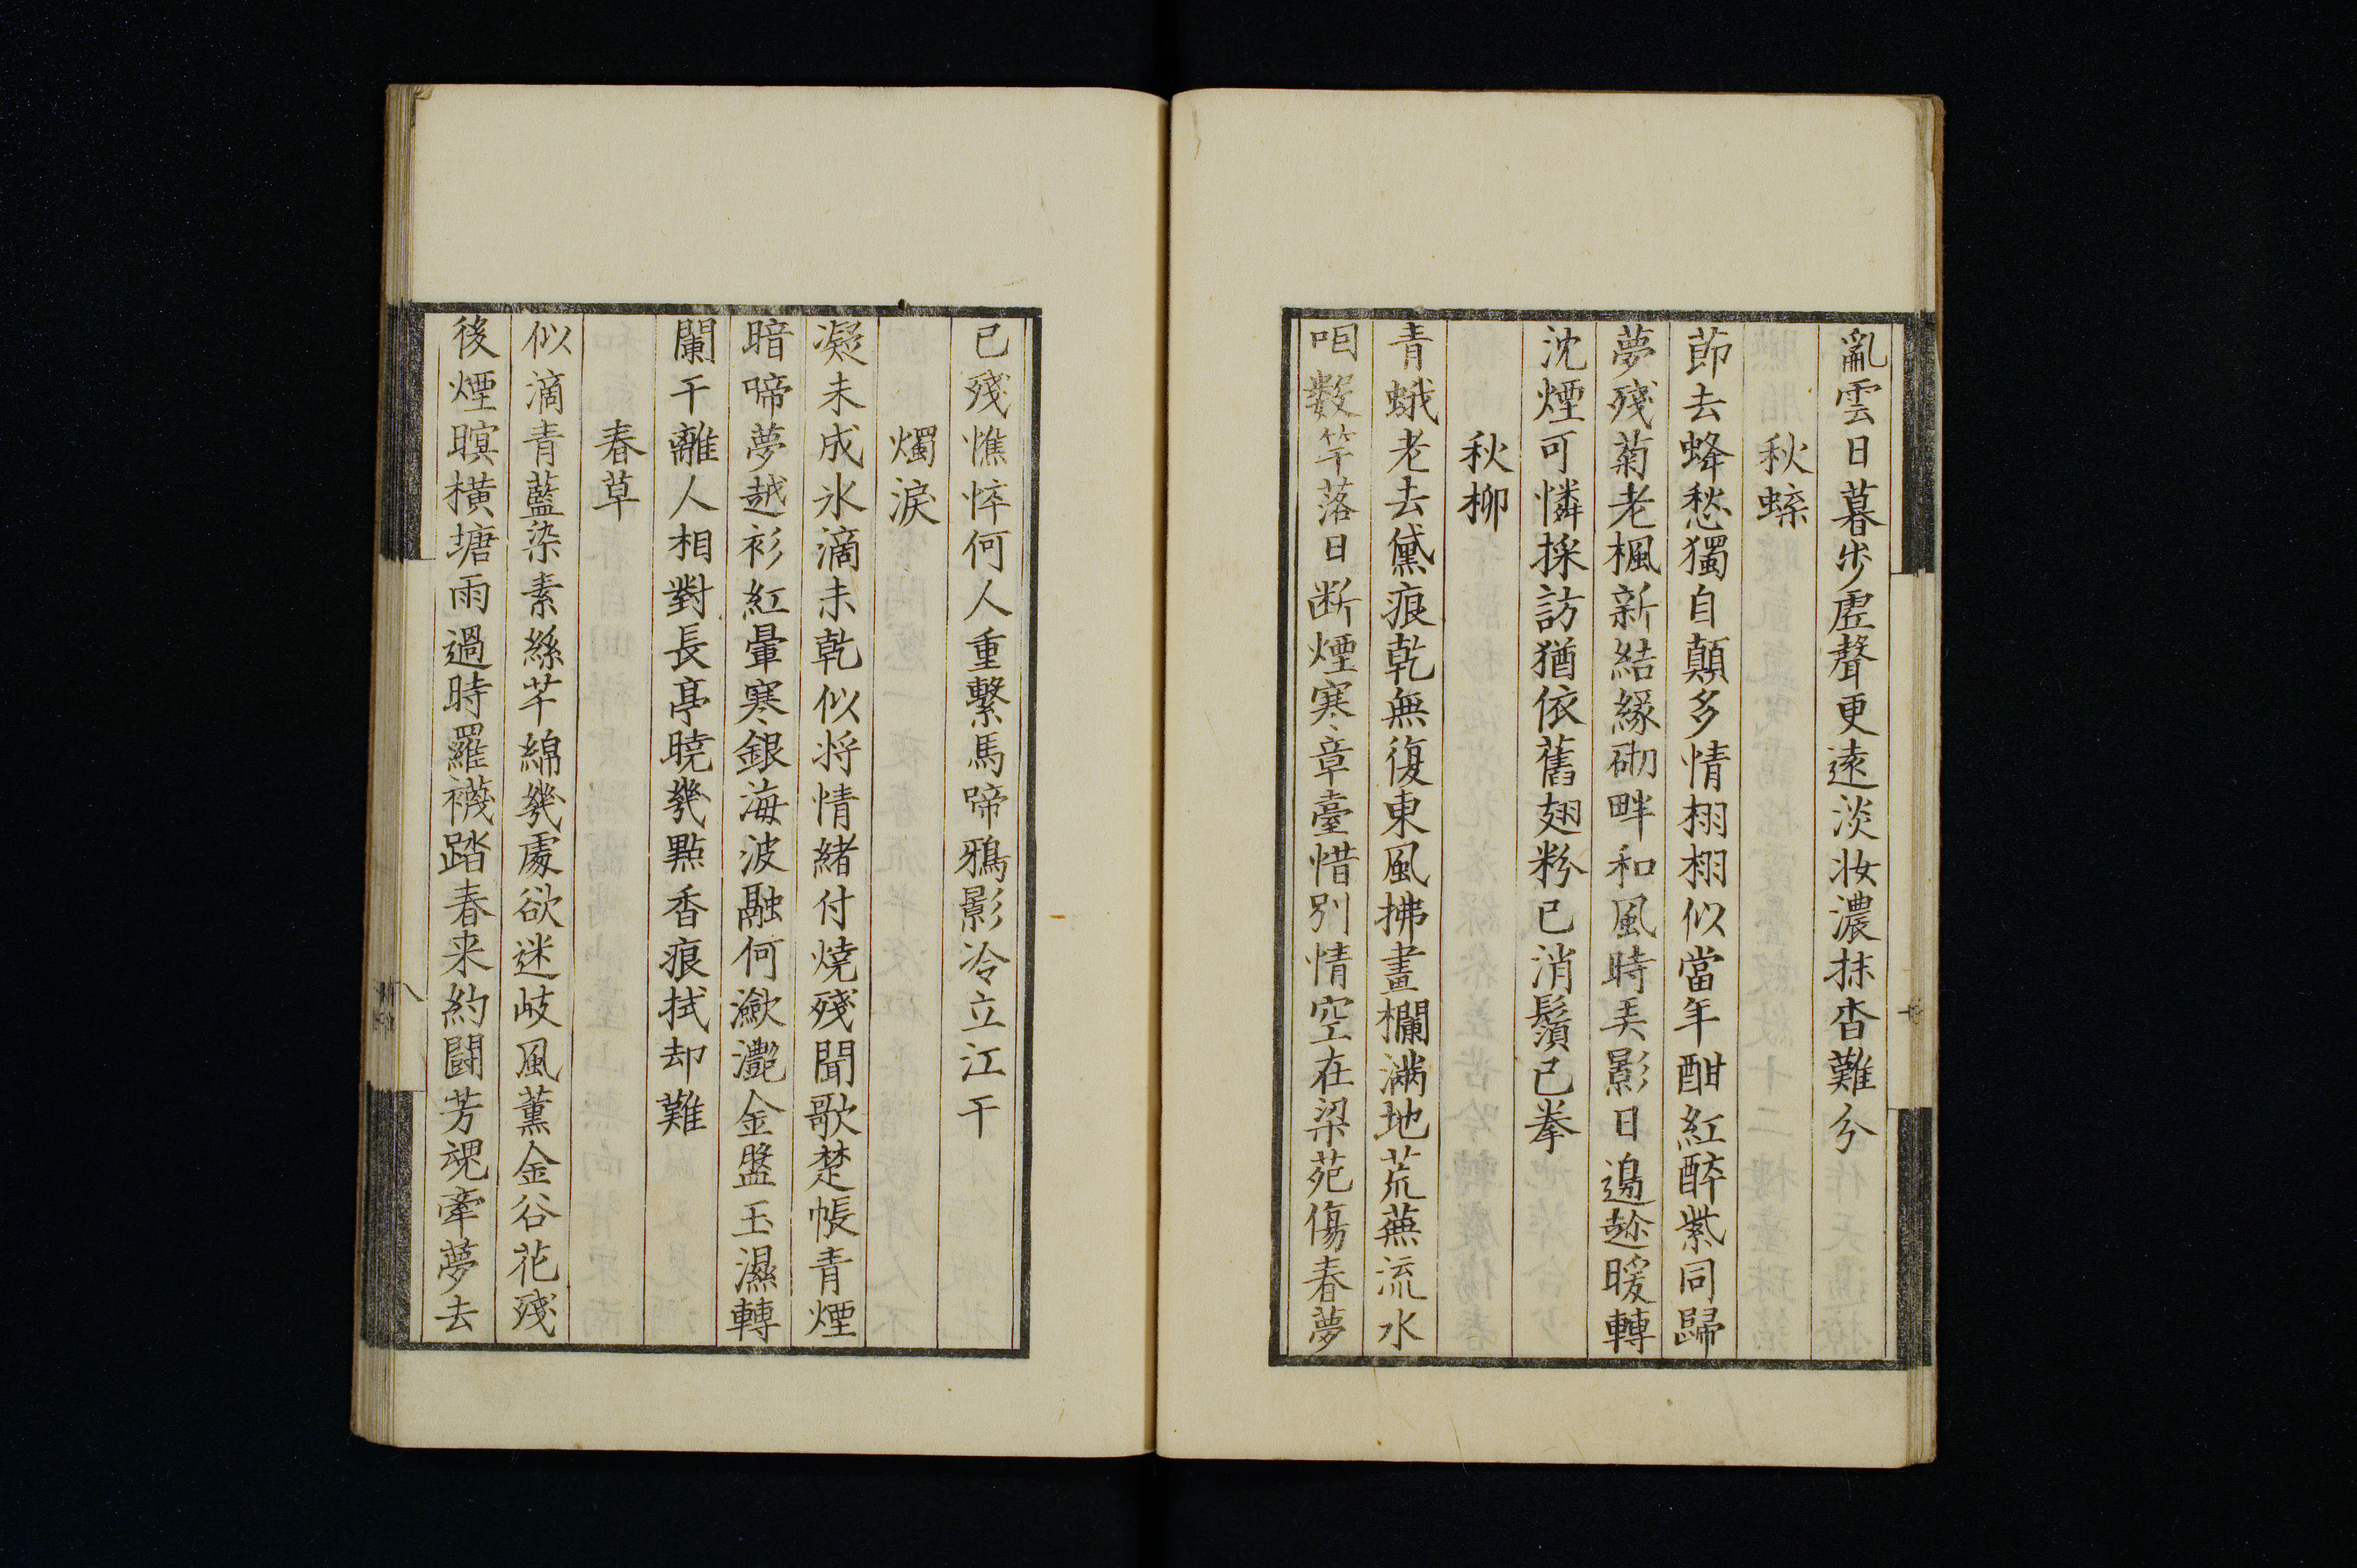 亂雲日暮步虛聲更遠淡妝濃抹杳難分
秋蜨
節去蜂愁獨自顛多情栩栩似當年酣紅醉紫同歸
夢殘菊老楓新結緣砌畔和風時弄影日邊趂暖轉
沈煙可憐採訪猶依舊翅粉已消鬚已拳
秋柳
青蛾老去黛痕乾無復東風拂畫欄滿地荒蕪流水
咽數竿落日断煙寒章臺惜别情空在梁苑傷春夢
已殘憔悴何人重繫馬啼鴉影冷立江干
燭淚
凝未成氷滴未乾似将情緒付燒殘聞歌楚帳青煙
暗啼夢越衫紅暈寒銀海波融何瀲灧金盤玉濕轉
闌干離人相對長亭曉幾點香痕拭却難
春草
似滴青藍染素絲芊綿幾處欲迷岐風薰金谷花殘
後煙暝橫塘雨過時羅襪踏春来約鬪芳魂牽夢去